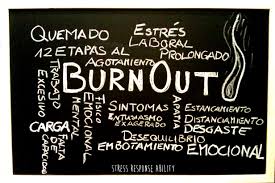 QUEMADO
ESTRÉS
LABORAL
PROLONGADO
12 ETAPAS AL
AGOTAMIENTO
BURNOUT
TRABAJO
EXCESIVO
FÍSICO
MENTAL
EMOCIONAL
SÍNTOMAS
ENTUSIASMO
EXAGERADO
APATÍA
ESTANCAMIENTO
DISTANCIAMIENTO
DESGASTE
CARGA
FALTA
DE
CAPACIDAD
DESEQUILIBRIO
EMBOTAMIENTO
EMOCIONAL
STRESS RESPONSE ABILITY